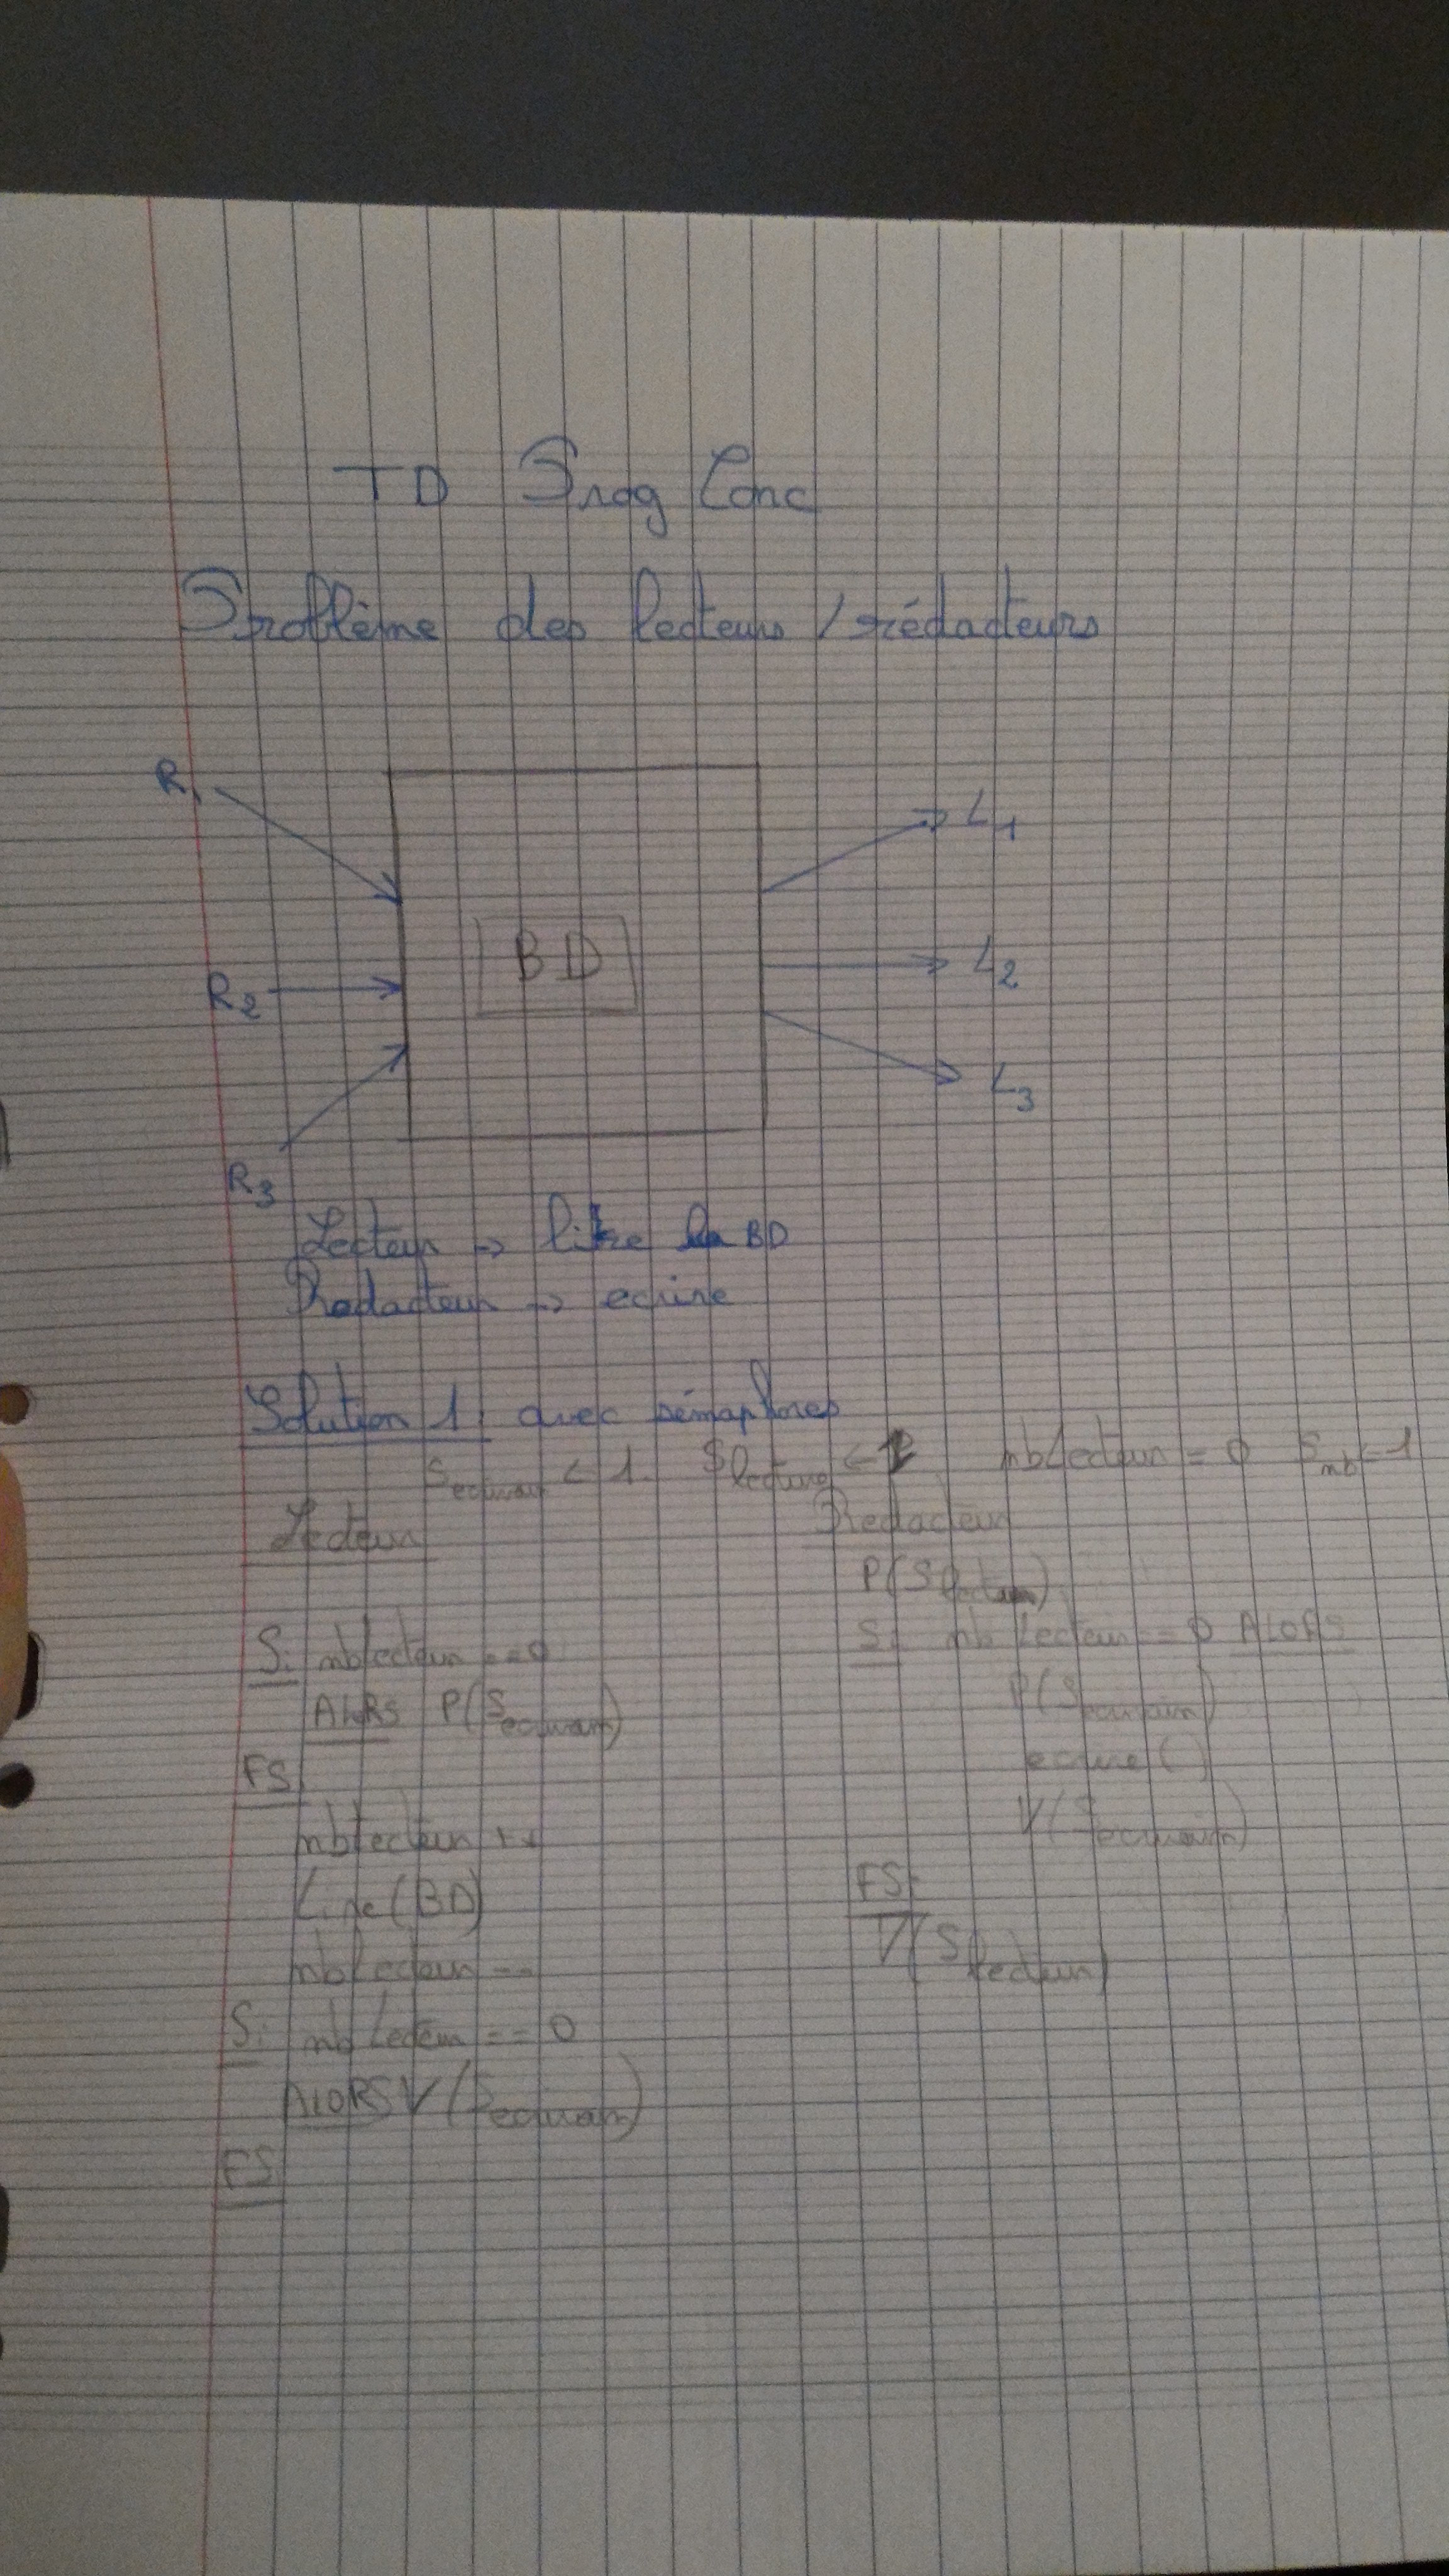 TD Prog Conc
Problème des lecteurs / rédacteurs
R1
L1
BD
R2
L2
L3
R3
Lecteur -> lire la BD
Redacteur -> ecrire
Solution 1 avec sémaphores
S ecrivain < 1 S lecture < nbLecteur = 0 S nb < 1
Lecteur
Si nblecteur == 0
ALORS P(S ecrivain)
FS
nblecteur ++
Lire(BD)
nblecteur --
Si nbLecteur == 0
ALORS V(S ecrivain)
FS
Redacteur
P(S lecteur)
Si nb lecteur == 0 ALORS
P(S ecrivain)
ecrire()
V(S ecrivain)
FS
V(S lecteur)